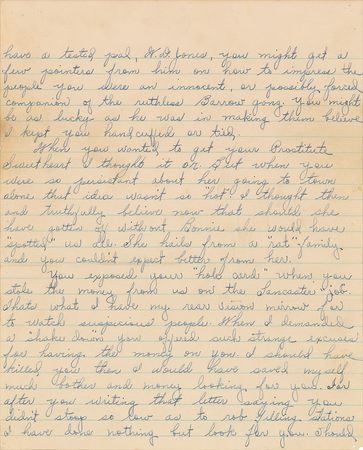 have a tested pal, W. D. Jones, you might get a
few pointers from him on how to impress the
people you were an innocent, or possibly forced
companion of the ruthless Barrow gang. You might
be as lucky as he was in making them believe
I kept you handcuffed or tied.
When you wanted to get your Prostitute
Sweetheart I thought it O.K. but when you
were so persistant about her going to town
alone that idea wasn't so "hot". I thought then
and truthfully believe now that should she
have gotten off without Bonnie she would have
"spotted" us all. She hails from a "rat" family
and you couldn't expect better from her.
You exposed your "hole card" when you
stole the money from us on the "Lancaster job."
Thats what I have my rear vision mirrow for
to watch suspicious people. When I demanded
a "shake down" you offerd such strange excuses
for having the money on you. I should have
killed you then I would have saved myself
much bother and money looking for you. For
after you writing that letter saying you
didn't stoop so low as to rob filling stations
I have done nothing but look for you. Should